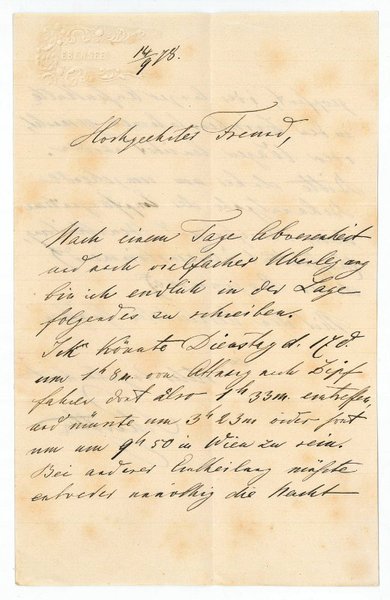 EBENSEE
14/9 78.
Hochgeehrter Freund,
Nach einem Tage Abwesenheit
und nach vielfacher Überlegung
bin ich endlich in der Lage
folgendes zu schreiben.
Ich könnte Dienstag d. 17 d.
um 1h 8m von Attnang nach Zipf
fahren dort also 1h 33m eintreffen,
und müsste um 3h 23m wieder fort
um um 9h 50 in Wien zu sein.
Bei anderer Eintheilung müsste
entweder unnöthig die Nacht